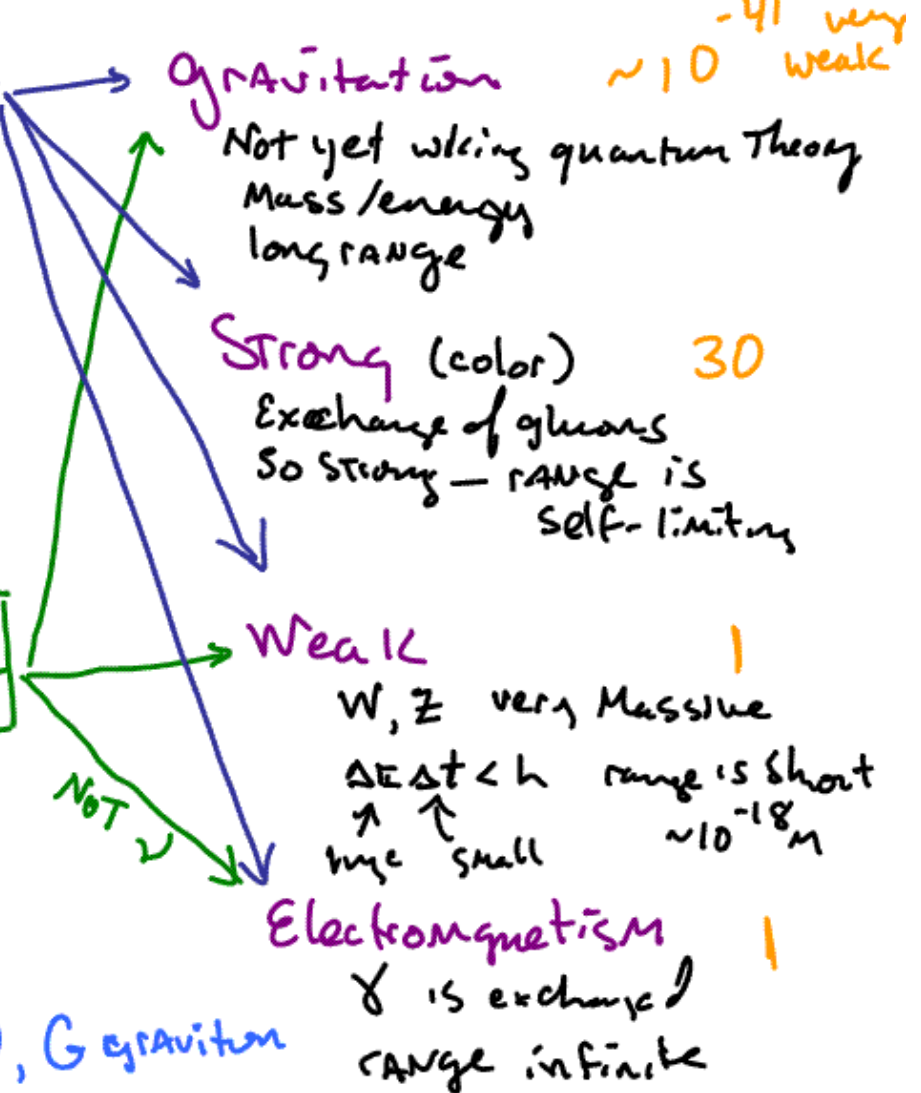 gravitation ~10^-41 very weak
Not yet wking quantum Theory
Mass/energy
long range
Strong (color) 30
Exechange of gluons
So Strong — range is
self-limiting
Weak 1
W, Z very Massive
ΔEΔt < h range is Short
↑ ↑ ~10^-18 m
huge small
NOT ν
Electromgnetism 1
γ is exchanged
, G graviton
range infinite